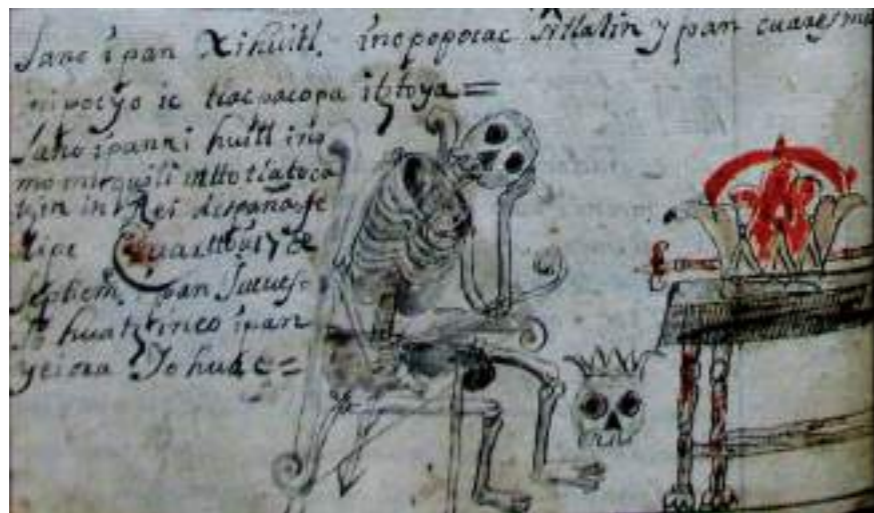 Sano ipan Xihuitl. inopopocac Sitlalin y pan cuaresma
nipocyo ic tlacpacopa itztoya =
Sano ipan xihuitl ino
momiquili intto tlatoca
tzin in Rei despaña fe
lipe Quartto y 17 de
Septiem. ipan Jueues
yo huatzinco ipan
yei ora Yo huac =